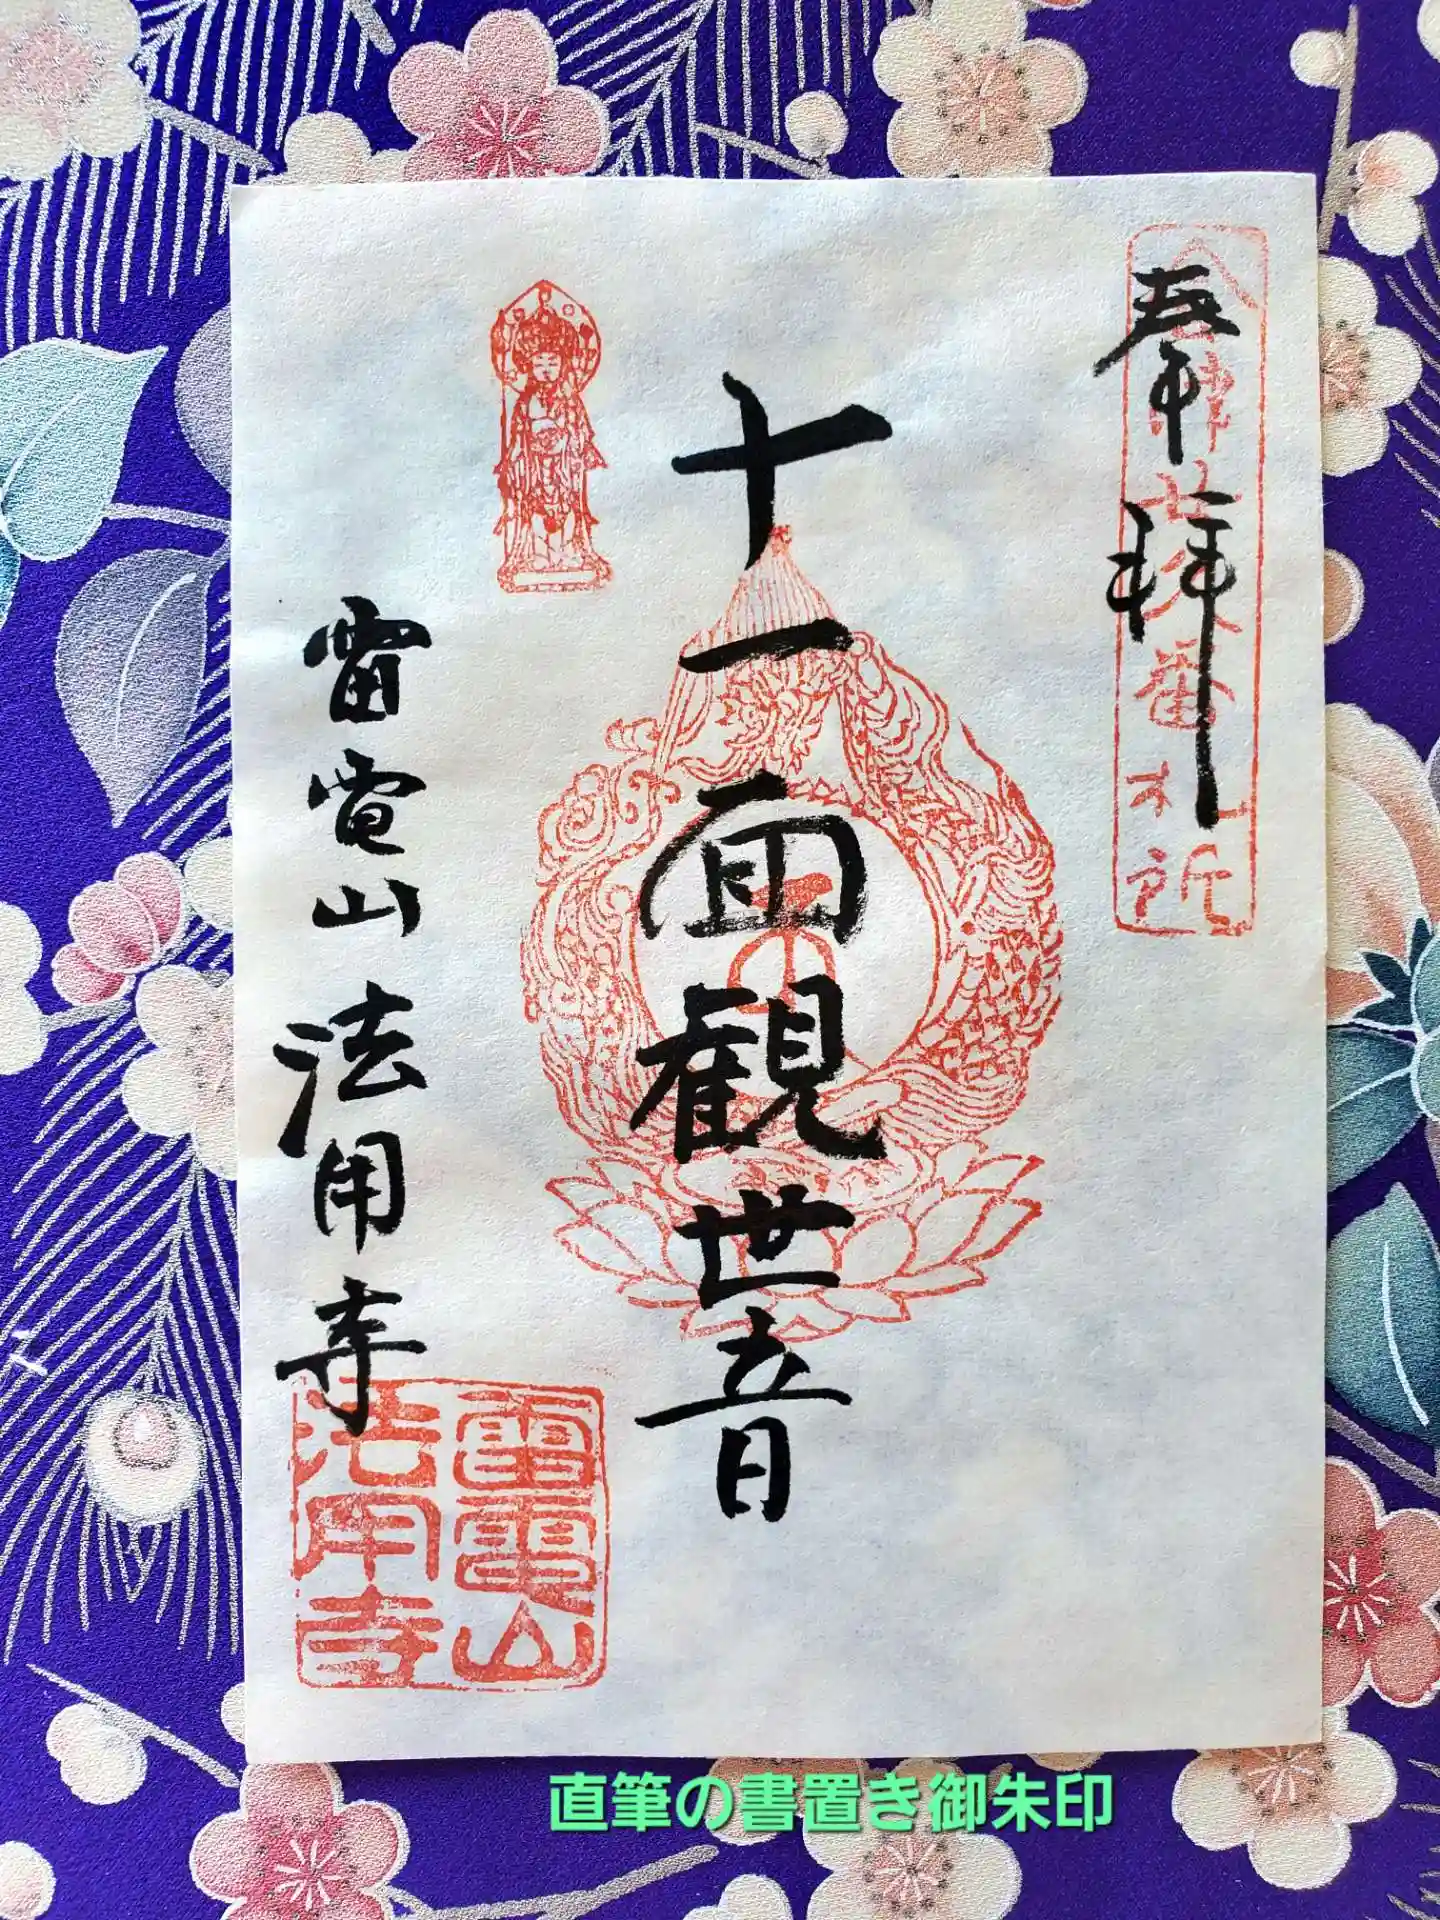 奉拝
会津廿九番札所
十一面観世音
雷電山 法用寺
雷電山
法用寺
直筆の書置き御朱印